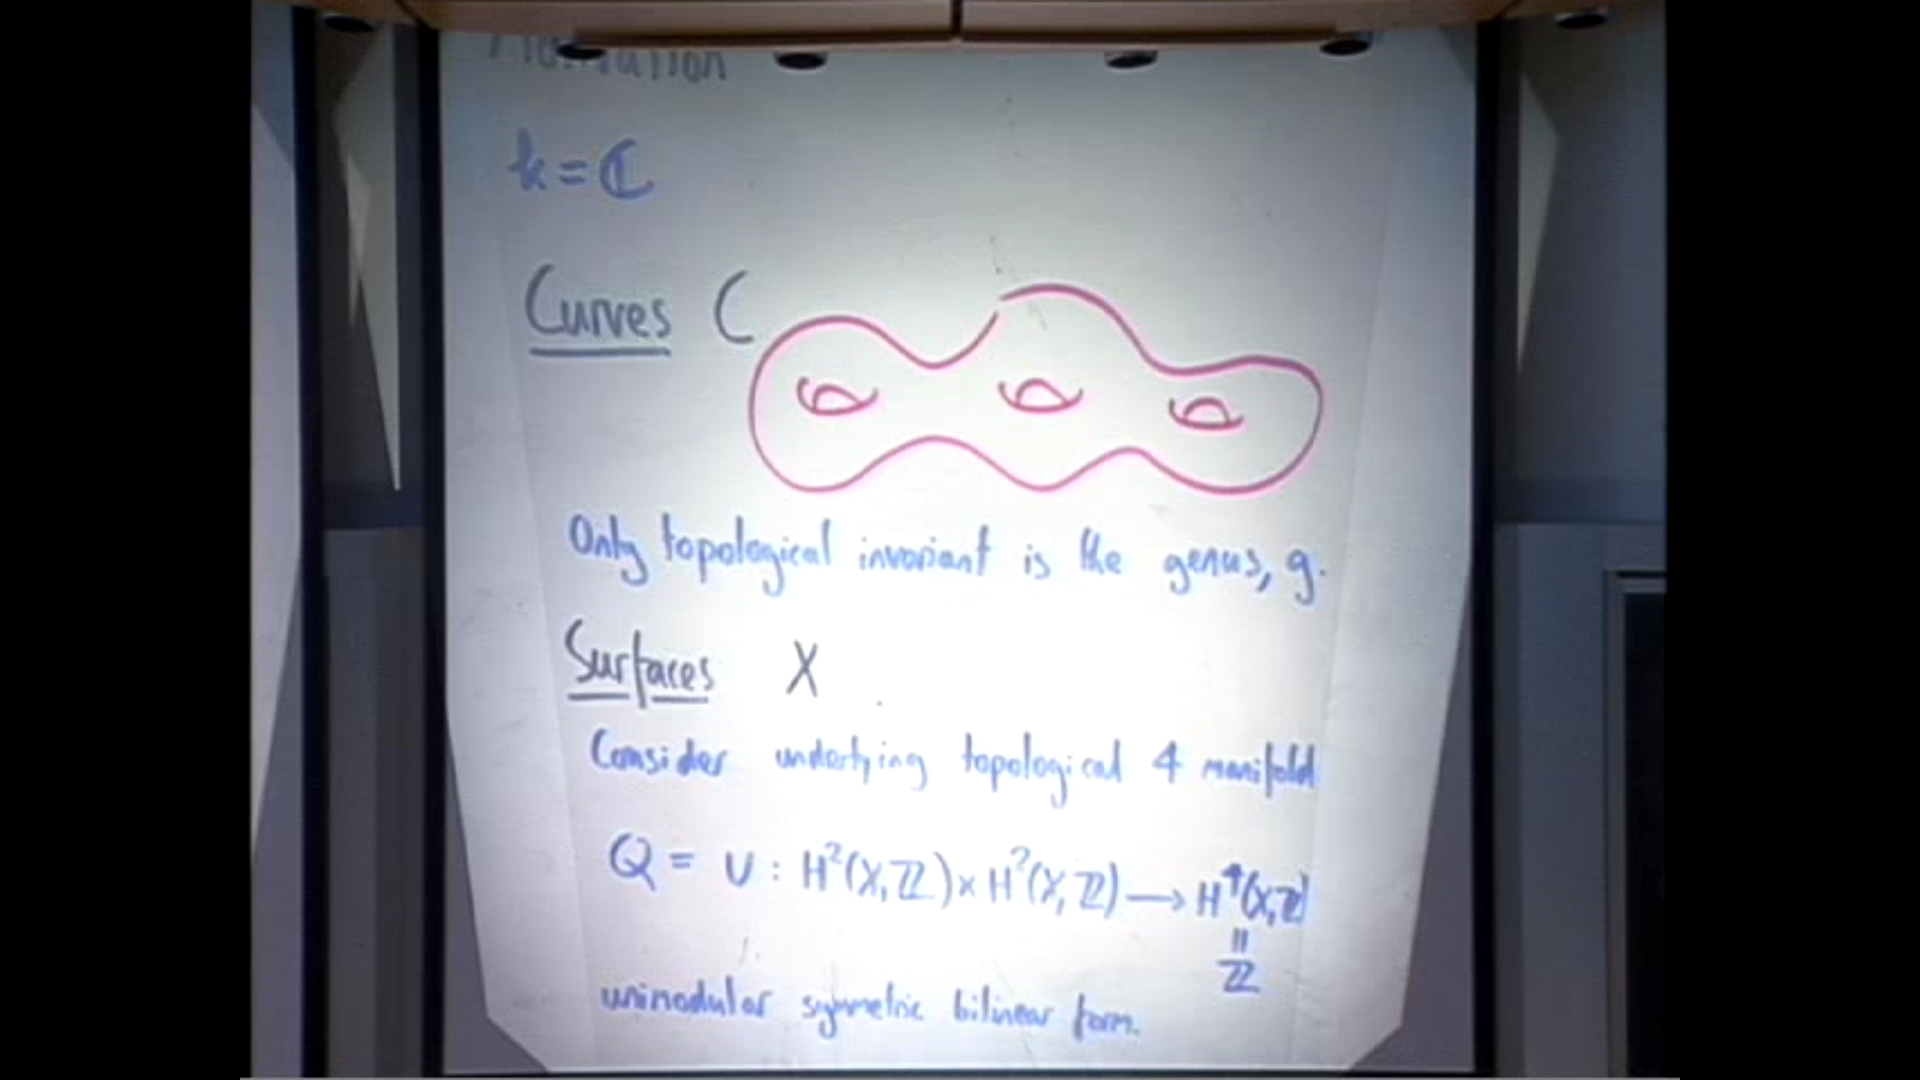 Motivation
k = ℂ
Curves C
Only topological invariant is the genus, g.
Surfaces X
Consider underlying topological 4 manifold
Q = ∪ : H²(X,ℤ) × H²(X,ℤ) ⟶ H⁴(X,ℤ)
=
ℤ
unimodular symmetric bilinear form.